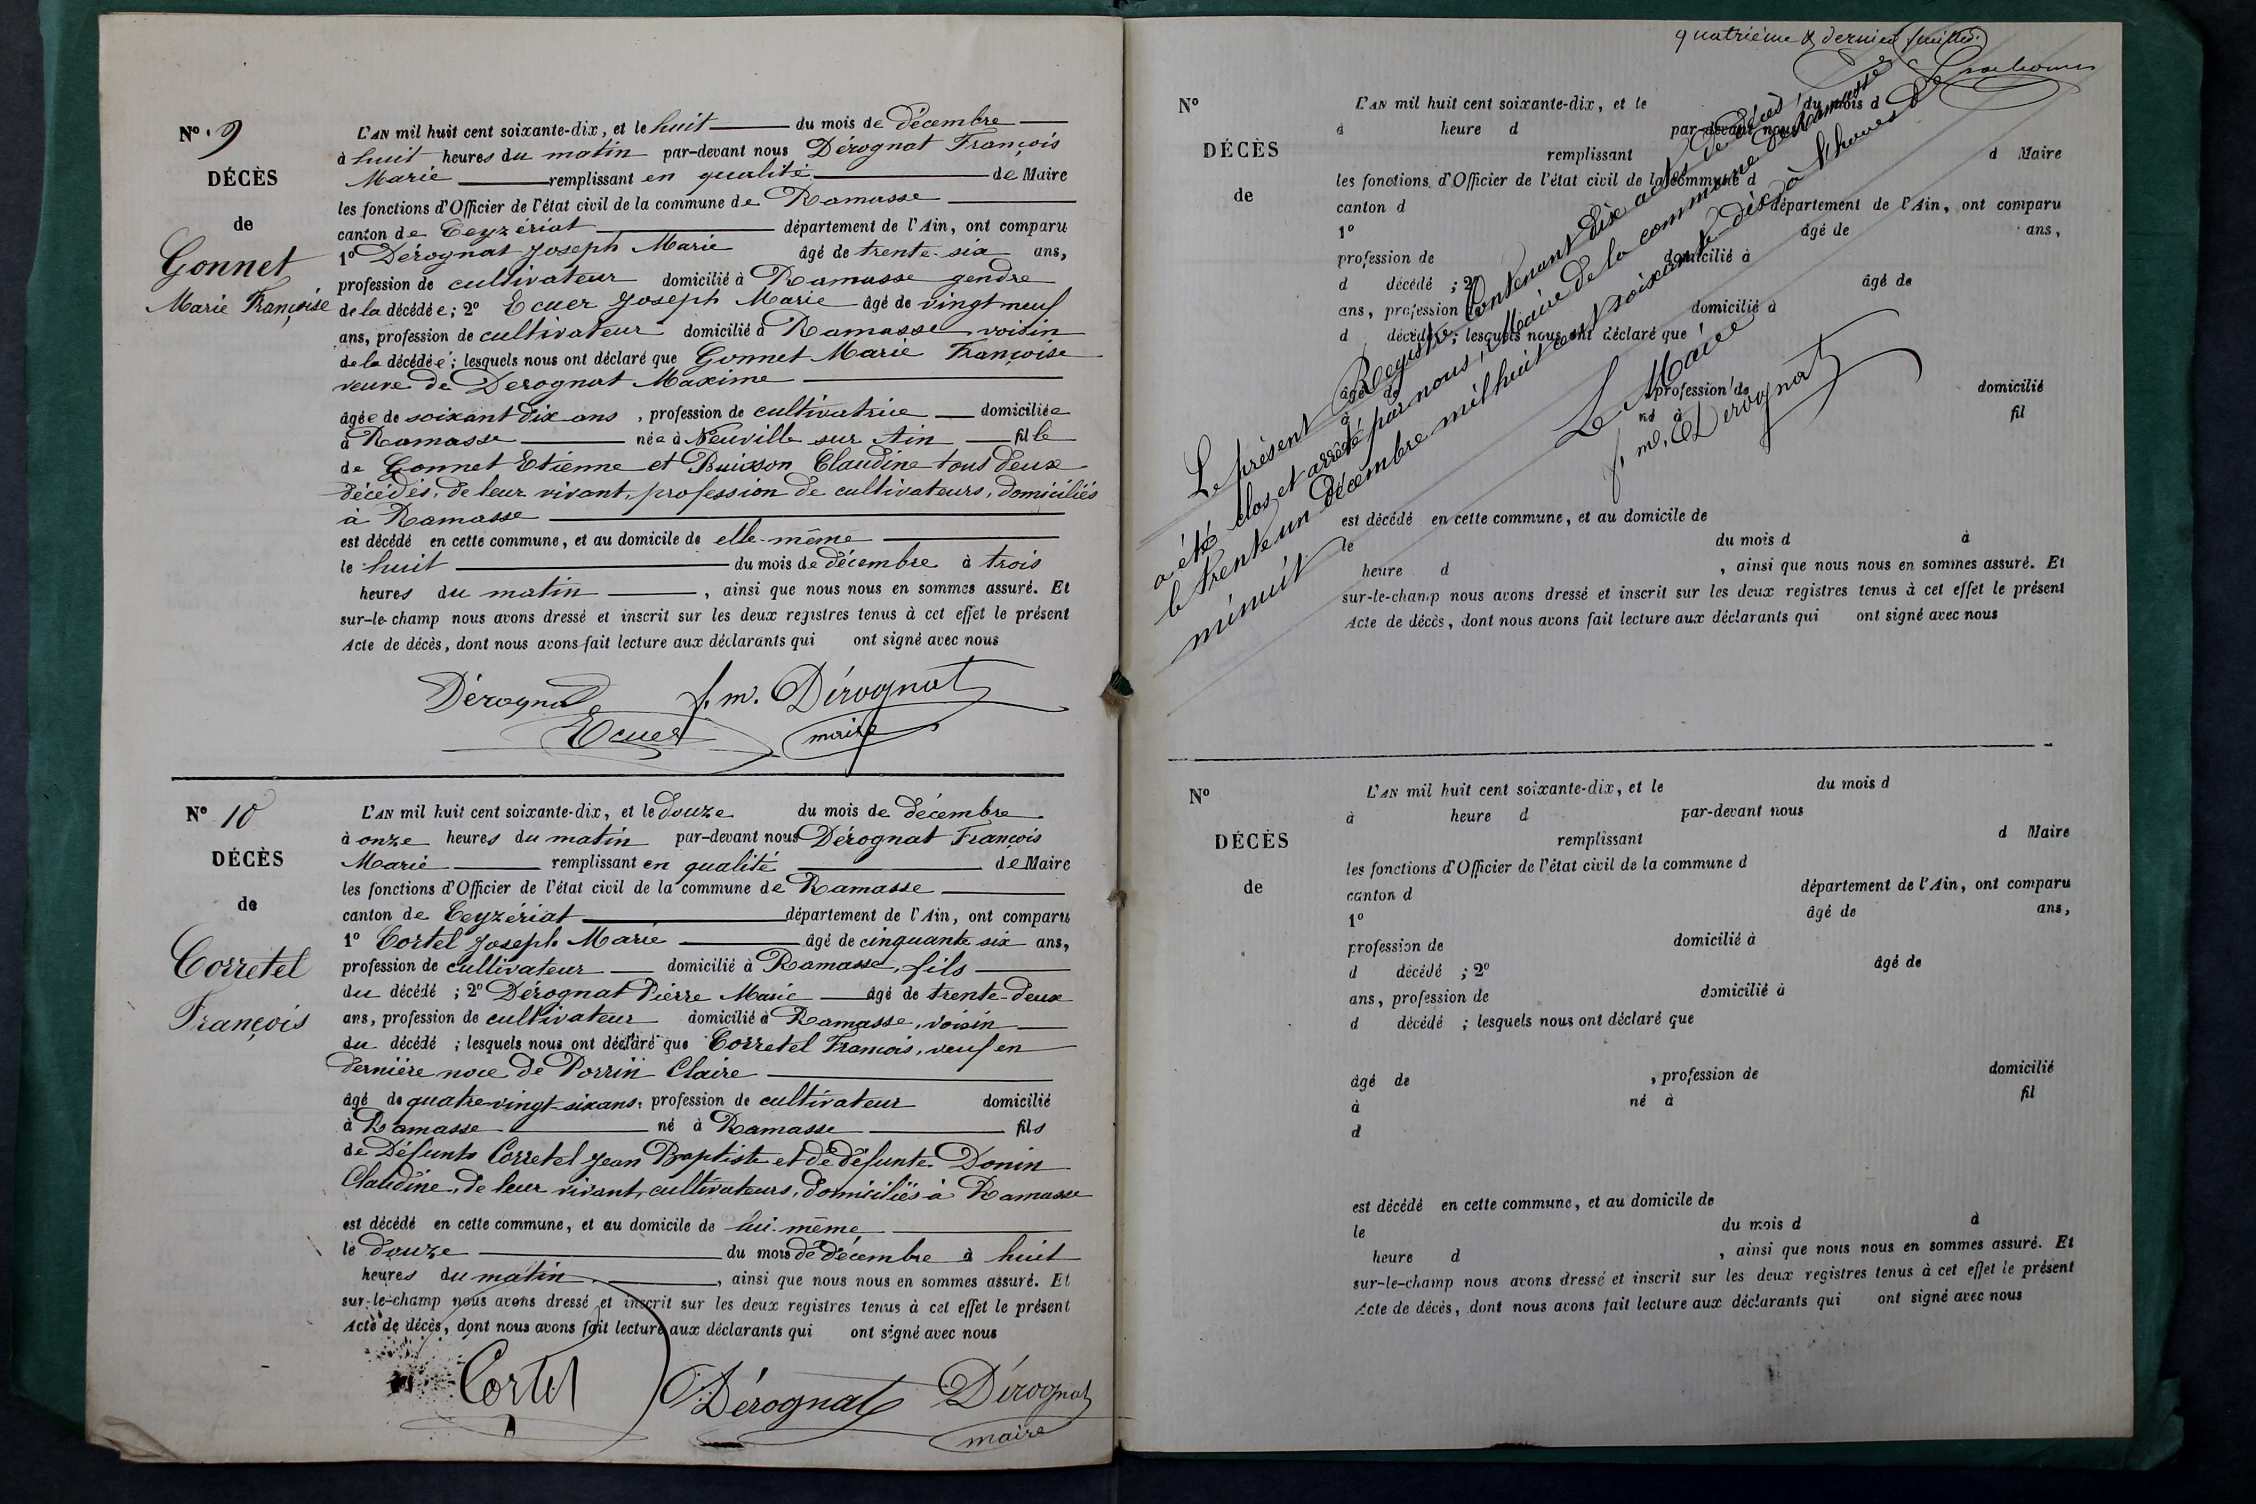 N° 9
DÉCÈS
de
Gonnet
Marie Françoise
L'AN mil huit cent soixante-dix, et le huit du mois de décembre
à huit heures du matin par-devant nous Dérognat François
Marie remplissant en qualité de Maire
les fonctions d'Officier de l'état civil de la commune de Ramasse
canton de Ceyzériat département de l'Ain, ont comparu
1° Dérognat Joseph Marie âgé de trente-six ans,
profession de cultivateur domicilié à Ramasse gendre
de la décédée; 2° Ecuer Joseph Marie âgé de vingt neuf
ans, profession de cultivateur domicilié à Ramasse voisin
de la décédée; lesquels nous ont déclaré que Gonnet Marie Françoise
veuve de Derognat Maxime
âgée de soixant dix ans, profession de cultivatrice domiciliée
à Ramasse née à Neuville sur Ain fille
de Gonnet Etienne et Buisson Claudine tous deux
décédés, de leur vivant, profession de cultivateurs, domiciliés
à Ramasse
est décédé en cette commune, et au domicile de elle-même
le huit du mois de décembre à trois
heures du matin, ainsi que nous nous en sommes assuré. Et
sur-le-champ nous avons dressé et inscrit sur les deux registres tenus à cet effet le présent
Acte de décès, dont nous avons fait lecture aux déclarants qui ont signé avec nous
Dérognat f. m. Dérognat
Ecuer maire
N° 10
DÉCÈS
de
Corretel
François
L'AN mil huit cent soixante-dix, et le douze du mois de décembre
à onze heures du matin par-devant nous Dérognat François
Marie remplissant en qualité de Maire
les fonctions d'Officier de l'état civil de la commune de Ramasse
canton de Ceyzériat département de l'Ain, ont comparu
1° Cortel Joseph Marie âgé de cinquante six ans,
profession de cultivateur domicilié à Ramasse, fils
du décédé; 2° Dérognat Pierre Marie âgé de trente-deux
ans, profession de cultivateur domicilié à Ramasse, voisin
du décédé; lesquels nous ont déclaré que Corretel François, veuf en
dernière noce de Porrin Claire
âgé de quatre-vingt-six ans, profession de cultivateur domicilié
à Ramasse né à Ramasse fils
de Défunts Corretel Jean Baptiste et de défunte Donin
Claudine, de leur vivant, cultivateurs, domiciliés à Ramasse
est décédé en cette commune, et au domicile de lui-même
le douze du mois de décembre à huit
heures du matin, ainsi que nous nous en sommes assuré. Et
sur-le-champ nous avons dressé et inscrit sur les deux registres tenus à cet effet le présent
Acte de décès, dont nous avons fait lecture aux déclarants qui ont signé avec nous
Cortel Dérognat Dérognat
maire
quatrième & dernier feuillet.
N°
DÉCÈS
de
L'AN mil huit cent soixante-dix, et le du mois d
à heure d par-devant nous
remplissant d Maire
les fonctions d'Officier de l'état civil de la commune d
canton d département de l'Ain, ont comparu
1° âgé de ans,
profession de domicilié à
d décédé; 2° âgé de
ans, profession de domicilié à
d décédé; lesquels nous ont déclaré que
âgé de profession de domicilié
à né à fil
est décédé en cette commune, et au domicile de
le du mois d à
heure d, ainsi que nous nous en sommes assuré. Et
sur-le-champ nous avons dressé et inscrit sur les deux registres tenus à cet effet le présent
Acte de décès, dont nous avons fait lecture aux déclarants qui ont signé avec nous
Le présent Registre contenant dix actes de décès
a été clos et arrêté par nous, Maire de la commune de Ramasse
le trente un décembre mil huit cent soixante-dix, à heures de
minuit
Le Maire
f. m. Dérognat
N°
DÉCÈS
de
L'AN mil huit cent soixante-dix, et le du mois d
à heure d par-devant nous
remplissant d Maire
les fonctions d'Officier de l'état civil de la commune d
canton d département de l'Ain, ont comparu
1° âgé de ans,
profession de domicilié à
d décédé; 2° âgé de
ans, profession de domicilié à
d décédé; lesquels nous ont déclaré que
âgé de, profession de domicilié
à né à fil
d
est décédé en cette commune, et au domicile de
le du mois d à
heure d, ainsi que nous nous en sommes assuré. Et
sur-le-champ nous avons dressé et inscrit sur les deux registres tenus à cet effet le présent
Acte de décès, dont nous avons fait lecture aux déclarants qui ont signé avec nous